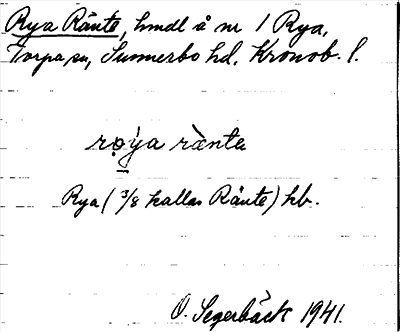 Rya Ränte, hmdl å nr 1 Rya,
Torpa sn, Sunnerbo hd, Kronob. l.
rǿ̣ya rànta
Rya (3/8 kallas Ränte) hb.
O. Segerbäck 1941.